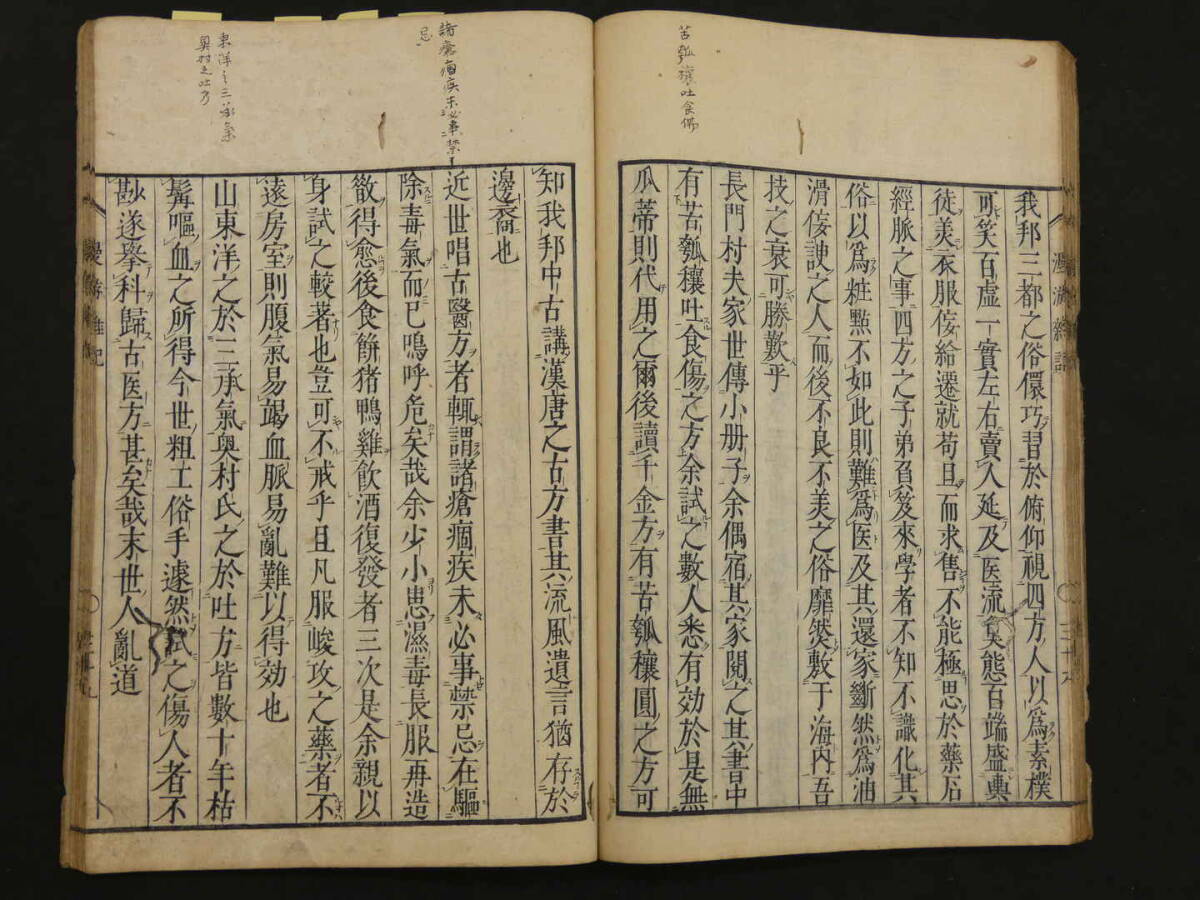 苦瓠穰吐食傷
我邦三都之俗儇巧習於俯仰視四方人以爲素樸
可笑百虛一實左右賣人延及医流奠態百端盛輿
徒美衣服侫給遷就苟且而求售不能極思於藥石
經脈之事四方之子弟負笈來學者不知不識化其
俗以爲粧點不如此則難爲医及其還家斷然爲油
滑侫諛之人而後不良不美之俗靡然敷于海内吾
技之衰可勝歎乎
長門村夫家世傳小册子余偶宿其家閱之其書中
有苦瓠穰吐食傷之方余試之數人悉有効於是無
瓜蒂則代用之爾後讀千金方有苦瓠穰圓之方可
諸瘡痼疾未必事禁
忌
東洋之三承氣
奥村之吐方
知我邦中古講漢唐之古方書其流風遺言猶存於
邊裔也
近世唱古醫方者輒謂諸瘡痼疾未必事禁忌在驅
除毒氣而已嗚呼危矣哉余少小患濕毒長服再造
散得愈後食餅猪鴨雞飲酒復發者三次是余親以
身試之較著也豈可不戒乎且凡服峻攻之藥者不
遠房室則腹氣易竭血脈易亂難以得効也
山東洋之於三承氣奥村氏之於吐方皆數十年枯
髯嘔血之所得今世粗工俗手遽然試之傷人者不
尠遂擧科歸古医方甚矣哉末世人亂道